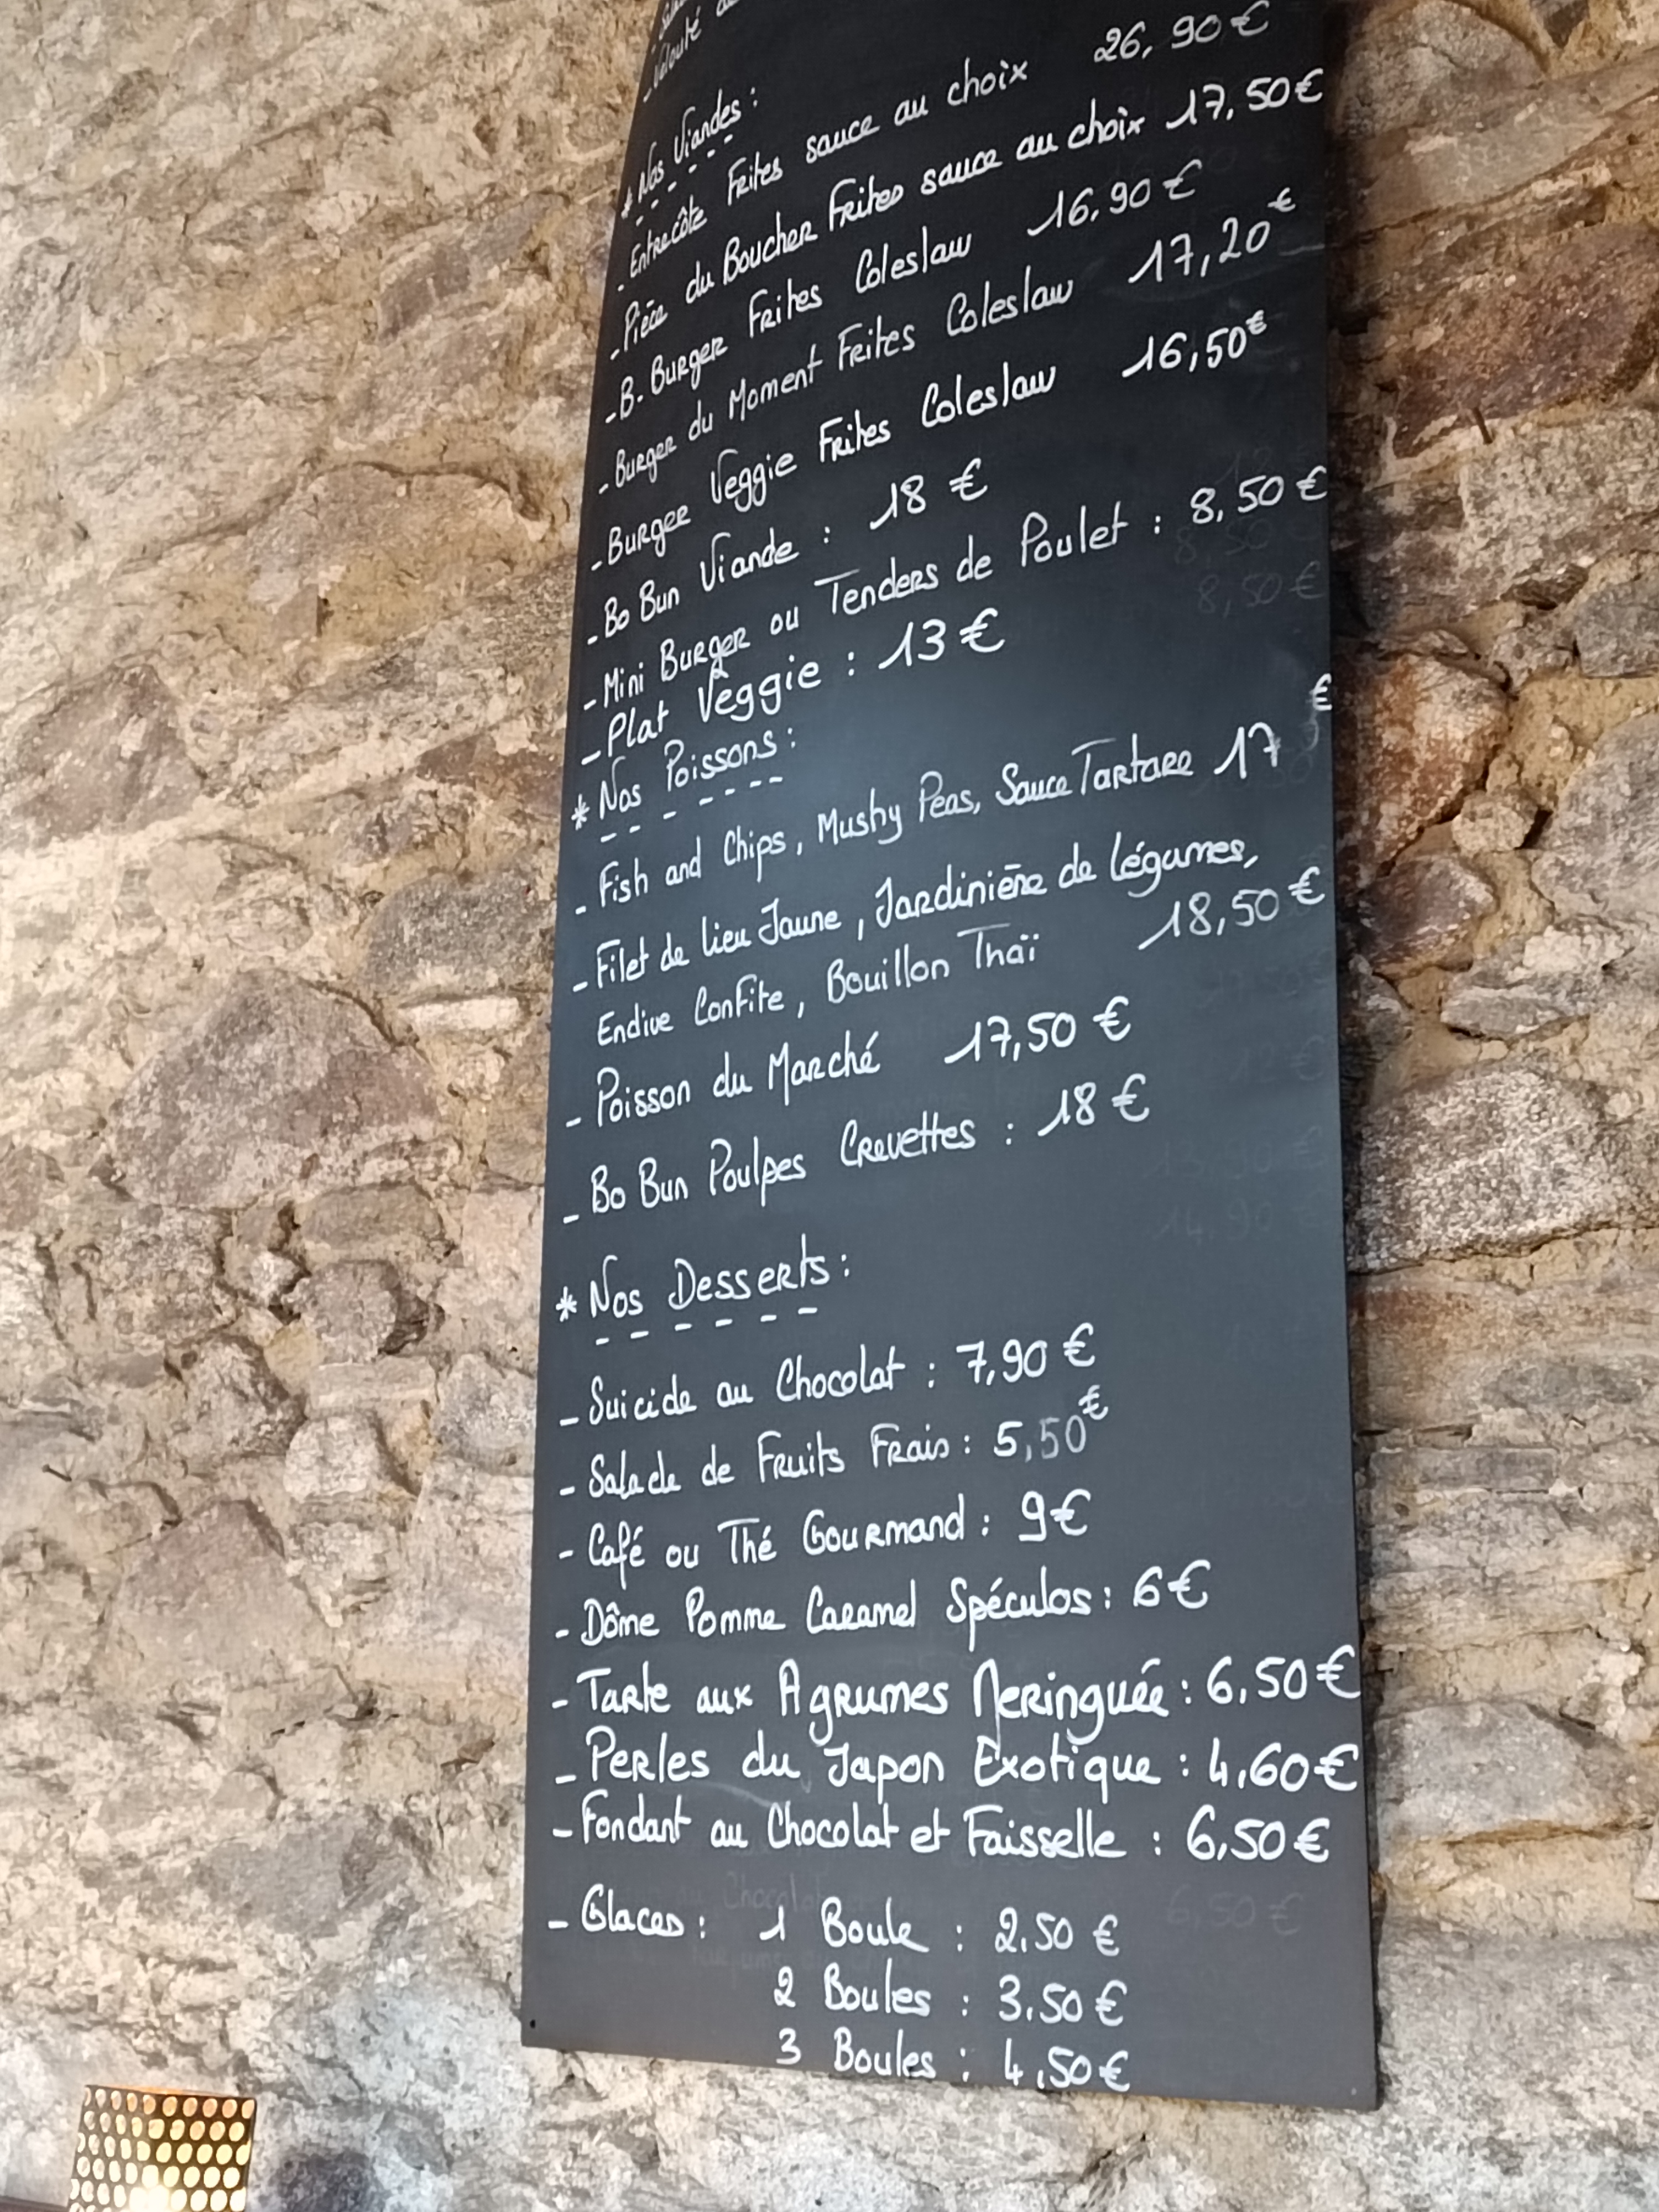 - Velouté
* Nos Viandes :
- Entrecôte Frites sauce au choix 26,90 €
- Pièce du Boucher Frites sauce au choix 17,50 €
- B. Burger Frites Coleslaw 16,90 €
- Burger du Moment Frites Coleslaw 17,20 €
- Burger Veggie Frites Coleslaw 16,50 €
- Bo Bun Viande : 18 €
- Mini Burger ou Tenders de Poulet : 8,50 €
- Plat Veggie : 13 €
* Nos Poissons :
- Fish and Chips, Mushy Peas, Sauce Tartare 17 €
- Filet de lieu Jaune, Jardinière de légumes,
Endive Confite, Bouillon Thaï 18,50 €
- Poisson du Marché 17,50 €
- Bo Bun Poulpes Crevettes : 18 €
* Nos Desserts :
- Suicide au Chocolat : 7,90 €
- Salade de Fruits Frais : 5,50 €
- Café ou Thé Gourmand : 9 €
- Dôme Pomme Caramel Spéculos : 6 €
- Tarte aux Agrumes Meringuée : 6,50 €
- Perles du Japon Exotique : 4,60 €
- Fondant au Chocolat et Faisselle : 6,50 €
- Glaces : 1 Boule : 2,50 €
2 Boules : 3.50 €
3 Boules : 4,50 €